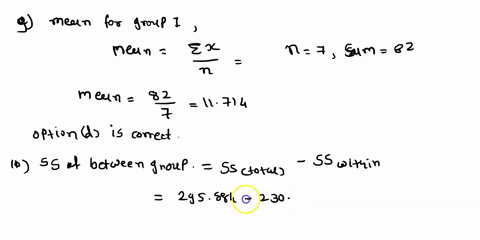 9) mean for group I,
mean = Σx/n = n=7, Sum = 82
mean = 82/7 = 11.714
option(d) is correct.
10) SS of between group. = SS(total) - SS within
= 295.884 - 230.